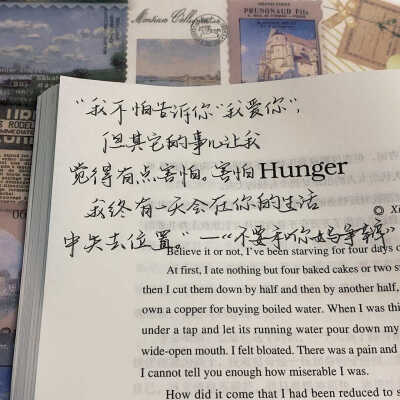 Monthon Collection
PRUNONAUD Fils
"我不怕告诉你"我爱你",
但其它的事儿让我
觉得有点害怕。害怕
Hunger
我终有一天会在你的生活
中失去位置。" —"不要和你妈争辩"
Believe it or not, I've been starving for four days o
At first, I ate nothing but four baked cakes or two s
then I cut them down by half and then by another half,
own a copper for buying boiled water. When I was thi
under a tap and let its running water pour down my
wide-open mouth. I felt bloated. There was a pain and
I cannot tell you enough how miserable I was.
How did it come that I had been reduced to s